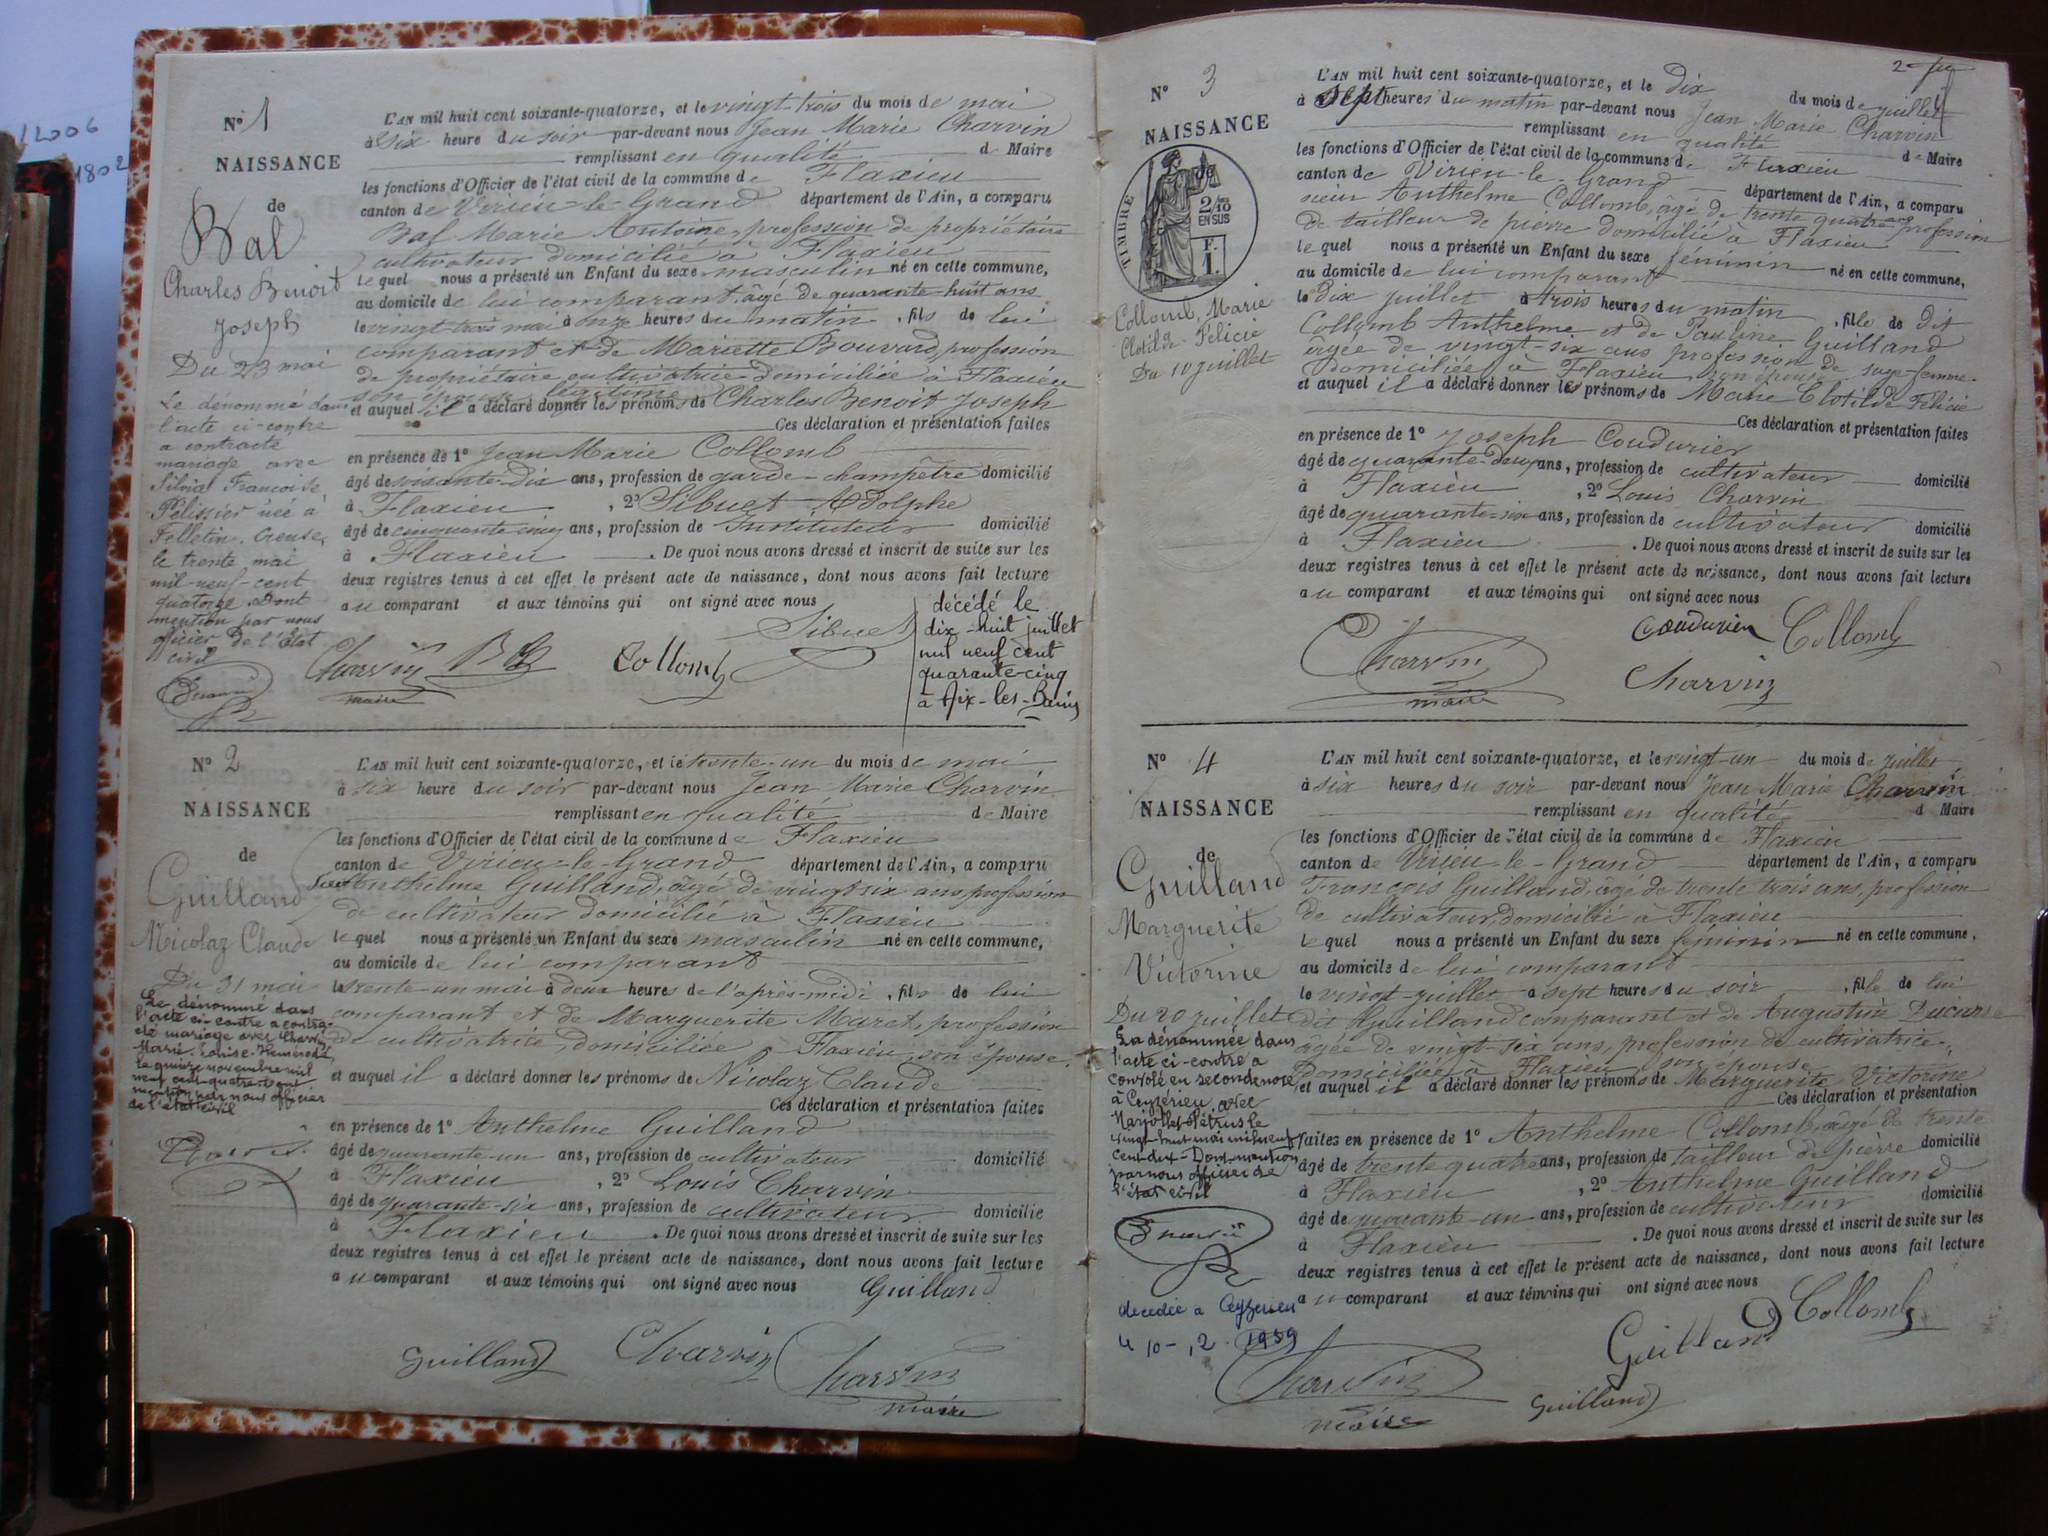 /2006
1802
N° 1
NAISSANCE
de
Bal
Charles Benoit
Joseph
Du 23 mai
Le dénommé dans
l'acte ci-contre
a contracté
mariage avec
Silvia Françoise
Pélissier née à
Felletin, Creuse,
le trente mai
mil-neuf-cent
quatorze. Dont
mention par nous
officier de l'Etat
civil
L'AN mil huit cent soixante-quatorze, et le vingt-trois du mois de mai
à six heure du soir par-devant nous Jean Marie Charvin
remplissant en qualité de Maire
les fonctions d'Officier de l'état civil de la commune de Flaxieu
canton de Virieu-le-Grand département de l'Ain, a comparu
Bal Marie Antoine, profession de propriétaire
cultivateur domicilié à Flaxieu
le quel nous a présenté un Enfant du sexe masculin né en cette commune,
au domicile de lui comparant, âgé de quarante-huit ans
le vingt trois mai à onze heures du matin, fils de lui
comparant et de Mariette Bouvard, profession
de propriétaire cultivatrice domiciliée à Flaxieu
son épouse légitime
et auquel il a déclaré donner les prénoms de Charles Benoit Joseph
Ces déclaration et présentation faites
en présence de 1° Jean Marie Collomb
âgé de soixante-dix ans, profession de garde-champêtre domicilié
à Flaxieu, 2° Sibuet Adolphe
âgé de cinquante cinq ans, profession de Instituteur domicilié
à Flaxieu. De quoi nous avons dressé et inscrit de suite sur les
deux registres tenus à cet effet le présent acte de naissance, dont nous avons fait lecture
au comparant et aux témoins qui ont signé avec nous
Sibuet
Charvin Bal Collomb
maire
décédé le
dix-huit juillet
mil neuf cent
quarante-cinq
à Aix-les-Bains
N° 2
NAISSANCE
de
Guilland
Nicolaz Claude
Du 31 mai
Le dénommé dans
l'acte ci-contre a contrac-
té mariage avec Charvin
Marie-Louise-
le quinze novembre mil
neuf cent quatre dont
mention par nous officier
de l'état civil
L'AN mil huit cent soixante-quatorze, et le trente-un du mois de mai
à six heure du soir par-devant nous Jean Marie Charvin
remplissant en qualité de Maire
les fonctions d'Officier de l'état civil de la commune de Flaxieu
canton de Virieu-le-Grand département de l'Ain, a comparu
Sieur Anthelme Guilland, âgé de vingt six ans profession
de cultivateur domicilié à Flaxieu
le quel nous a présenté un Enfant du sexe masculin né en cette commune,
au domicile de lui comparant
le trente-un mai à deux heures de l'après-midi, fils de lui
comparant et de Marguerite Maret, profession
de cultivatrice, domiciliée à Flaxieu, son épouse
et auquel il a déclaré donner les prénoms de Nicolaz Claude
Ces déclaration et présentation faites
en présence de 1° Anthelme Guilland
âgé de quarante-un ans, profession de cultivateur domicilié
à Flaxieu, 2° Louis Charvin
âgé de quarante-six ans, profession de cultivateur domicilié
à Flaxieu. De quoi nous avons dressé et inscrit de suite sur les
deux registres tenus à cet effet le présent acte de naissance, dont nous avons fait lecture
au comparant et aux témoins qui ont signé avec nous
Guilland
Guilland Charvin Charvin
maire
N° 3
NAISSANCE
de
TIMBRE
2/10
EN SUS
F.
1.
Collomb, Marie
Clotilde Félicie
Du 10 juillet
L'AN mil huit cent soixante-quatorze, et le dix du mois de juillet
à sept heures du matin par-devant nous Jean Marie Charvin
remplissant en qualité de Maire
les fonctions d'Officier de l'état civil de la commune de Flaxieu
canton de Virieu-le-Grand département de l'Ain, a comparu
sieur Anthelme Collomb, âgé de trente quatre ans profession
de tailleur de pierre domicilié à Flaxieu
le quel nous a présenté un Enfant du sexe féminin né en cette commune,
au domicile de lui comparant
le dix juillet à trois heures du matin, fille de dit
Collomb Anthelme et de Pauline Guilland
âgée de vingt-six ans profession de sage-femme
domiciliée à Flaxieu son épouse
et auquel il a déclaré donner les prénoms de Marie Clotilde Félicie
Ces déclaration et présentation faites
en présence de 1° Joseph Coudurier
âgé de quarante-deux ans, profession de cultivateur domicilié
à Flaxieu, 2° Louis Charvin
âgé de quarante-six ans, profession de cultivateur domicilié
à Flaxieu. De quoi nous avons dressé et inscrit de suite sur les
deux registres tenus à cet effet le présent acte de naissance, dont nous avons fait lecture
au comparant et aux témoins qui ont signé avec nous
Coudurier Collomb
Charvin Charvin
maire
N° 4
NAISSANCE
de
Guilland
Marguerite
Victorine
Du 20 juillet
La dénommée dans
l'acte ci-contre a
convolé en seconde noce
à Ceyzerieu avec
Marjollet Pétrus le
vingt-huit mai mil neuf
cent dix - Dont mention
par nous officier de
l'état civil
décédée à Ceyzerieu
1959
L'AN mil huit cent soixante-quatorze, et le vingt-un du mois de juillet
à six heures du soir par-devant nous Jean Marie Charvin
remplissant en qualité d Maire
les fonctions d'Officier de l'état civil de la commune de Flaxieu
canton de Virieu-le-Grand département de l'Ain, a comparu
François Guilland, âgé de trente trois ans, profession
de cultivateur, domicilié à Flaxieu
le quel nous a présenté un Enfant du sexe féminin né en cette commune,
au domicile de lui comparant
le vingt-juillet à sept heures du soir, fille de lui
dit Guilland comparant et de Augustine Ducarre
âgée de vingt-six ans, profession de cultivatrice,
domiciliée à Flaxieu, son épouse
et auquel il a déclaré donner les prénoms de Marguerite Victorine
Ces déclaration et présentation
faites en présence de 1° Anthelme Collomb, âgé de trente
âgé de trente quatre ans, profession de tailleur de pierre domicilié
à Flaxieu, 2° Anthelme Guilland
âgé de quarante-un ans, profession de cultivateur domicilié
à Flaxieu. De quoi nous avons dressé et inscrit de suite sur les
deux registres tenus à cet effet le présent acte de naissance, dont nous avons fait lecture
au comparant et aux témoins qui ont signé avec nous
Guilland Collomb
Charvin Guilland
maire